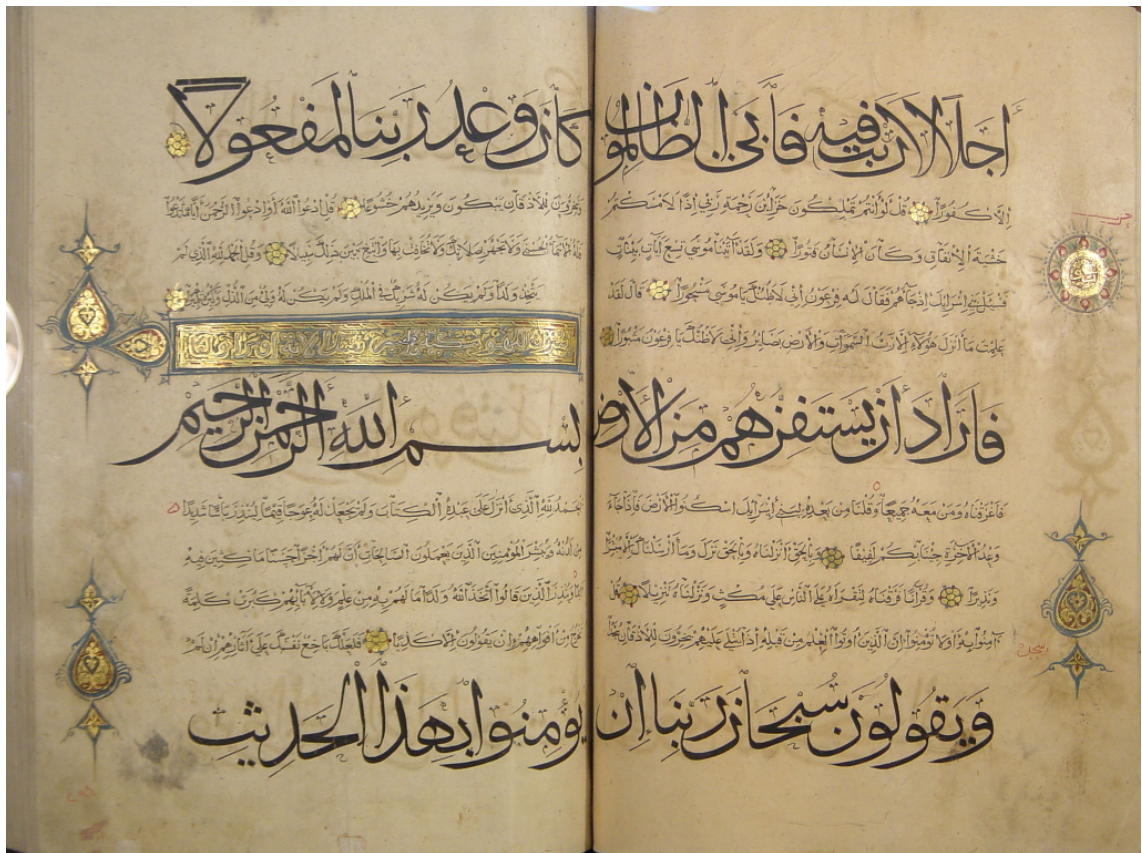 أجلا لا ريب فيه فأبى الظالمون
إلا كفورا قل لو أنتم تملكون خزائن رحمة ربي إذا لأمسكتم
خشية الإنفاق وكان الإنسان قتورا ولقد آتينا موسى تسع آيات بينات
فسئل بني إسرائيل إذ جاءهم فقال له فرعون إني لأظنك يا موسى مسحورا قال لقد
علمت ما أنزل هؤلاء إلا رب السموات والأرض بصائر وإني لأظنك يا فرعون مثبورا
فأراد أن يستفزهم من الأرض
فأغرقناه ومن معه جميعا وقلنا من بعده لبني إسرائيل اسكنوا الأرض فإذا جاء
وعد الآخرة جئنا بكم لفيفا وبالحق أنزلناه وبالحق نزل وما أرسلناك إلا مبشرا
ونذيرا وقرآنا فرقناه لتقرأه على الناس على مكث ونزلناه تنزيلا قل
آمنوا به أو لا تؤمنوا إن الذين أوتوا العلم من قبله إذا يتلى عليهم يخرون للأذقان سجدا
ويقولون سبحان ربنا إن
كان وعد ربنا لمفعولا
ويخرون للأذقان يبكون ويزيدهم خشوعا قل ادعوا الله أو ادعوا الرحمن أيا ما تدعوا
فله الأسماء الحسنى ولا تجهر بصلاتك ولا تخافت بها وابتغ بين ذلك سبيلا وقل الحمد لله الذي لم
يتخذ ولدا ولم يكن له شريك في الملك ولم يكن له ولي من الذل وكبره تكبيرا
بسم الله الرحمن الرحيم
الحمد لله الذي أنزل على عبده الكتاب ولم يجعل له عوجا قيما لينذر بأسا شديدا
من لدنه ويبشر المؤمنين الذين يعملون الصالحات أن لهم أجرا حسنا ماكثين فيه
أبدا وينذر الذين قالوا اتخذ الله ولدا ما لهم به من علم ولا لآبائهم كبرت كلمة
تخرج من أفواههم إن يقولون إلا كذبا فلعلك باخع نفسك على آثارهم إن لم
يؤمنوا بهذا الحديث